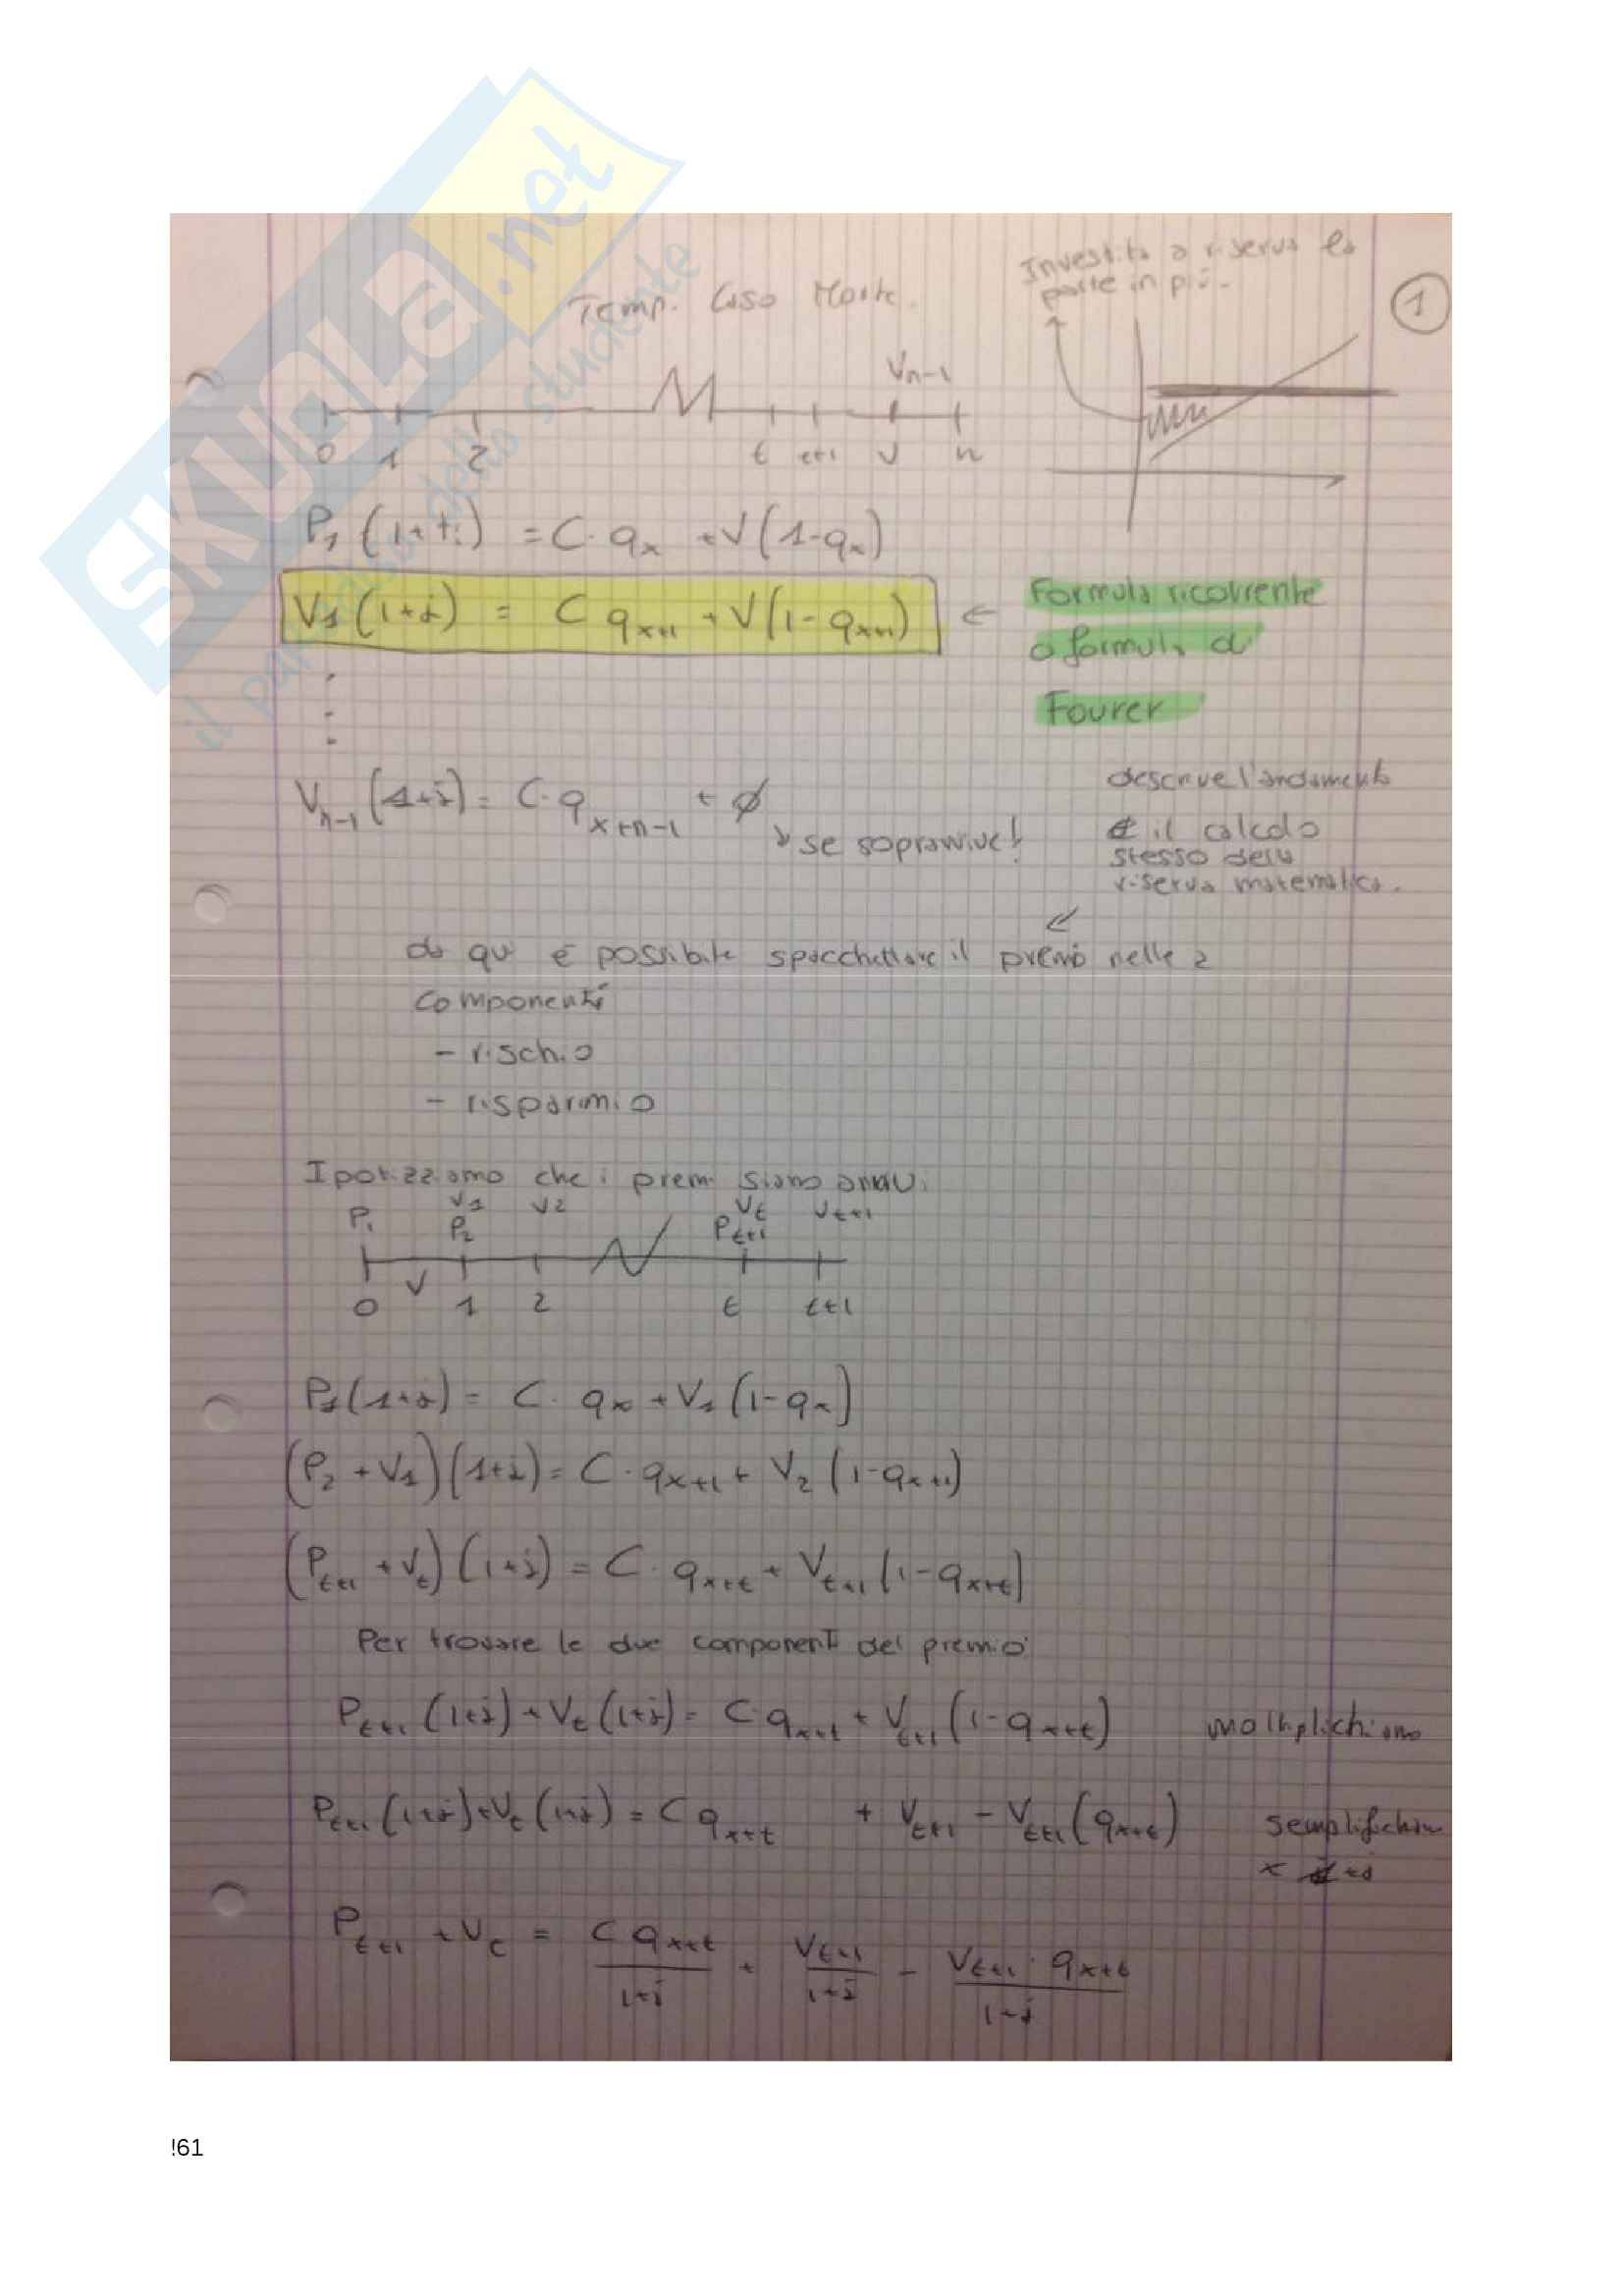 SKUOLA.net
il paradiso dello studente
Investito a riserva la
parte in più.
1
Temp. Caso Morte.
Vn-1
0 1 2 t t+1 V n
P1 (1+i) = C · qx + V(1-qx)
V1 (1+i) = C qx+1 + V(1-qx+1) ←
Formula ricorrente
o formula di
Fourer
Vn-1 (1+i) = C · qx+n-1 + ∅
↘ se sopravvive!
descrive l'andamento
e il calcolo
stesso della
riserva matematica.
da qui è possibile spacchettare il premio nelle 2
componenti
- rischio
- risparmio
Ipotizziamo che i premi siano annui
P1 V1 V2 Vt Vt+1
P2 Pt+1
0 V 1 2 t t+1
P1(1+i) = C · qx + V1 (1-qx)
(P2 + V1)(1+i) = C · qx+1 + V2 (1-qx+1)
(Pt+1 + Vt)(1+i) = C · qx+t + Vt+1 (1-qx+t)
Per trovare le due componenti del premio
Pt+1 (1+i) + Vt (1+i) = C · qx+t + Vt+1 (1-qx+t) moltiplichiamo
Pt+1 (1+i) + Vt (1+i) = C qx+t + Vt+1 - Vt+1 (qx+t) semplifichiam
Pt+1 + Vt = C qx+t / 1+i + Vt+1 / 1+i - Vt+1 · qx+t / 1+i
!61